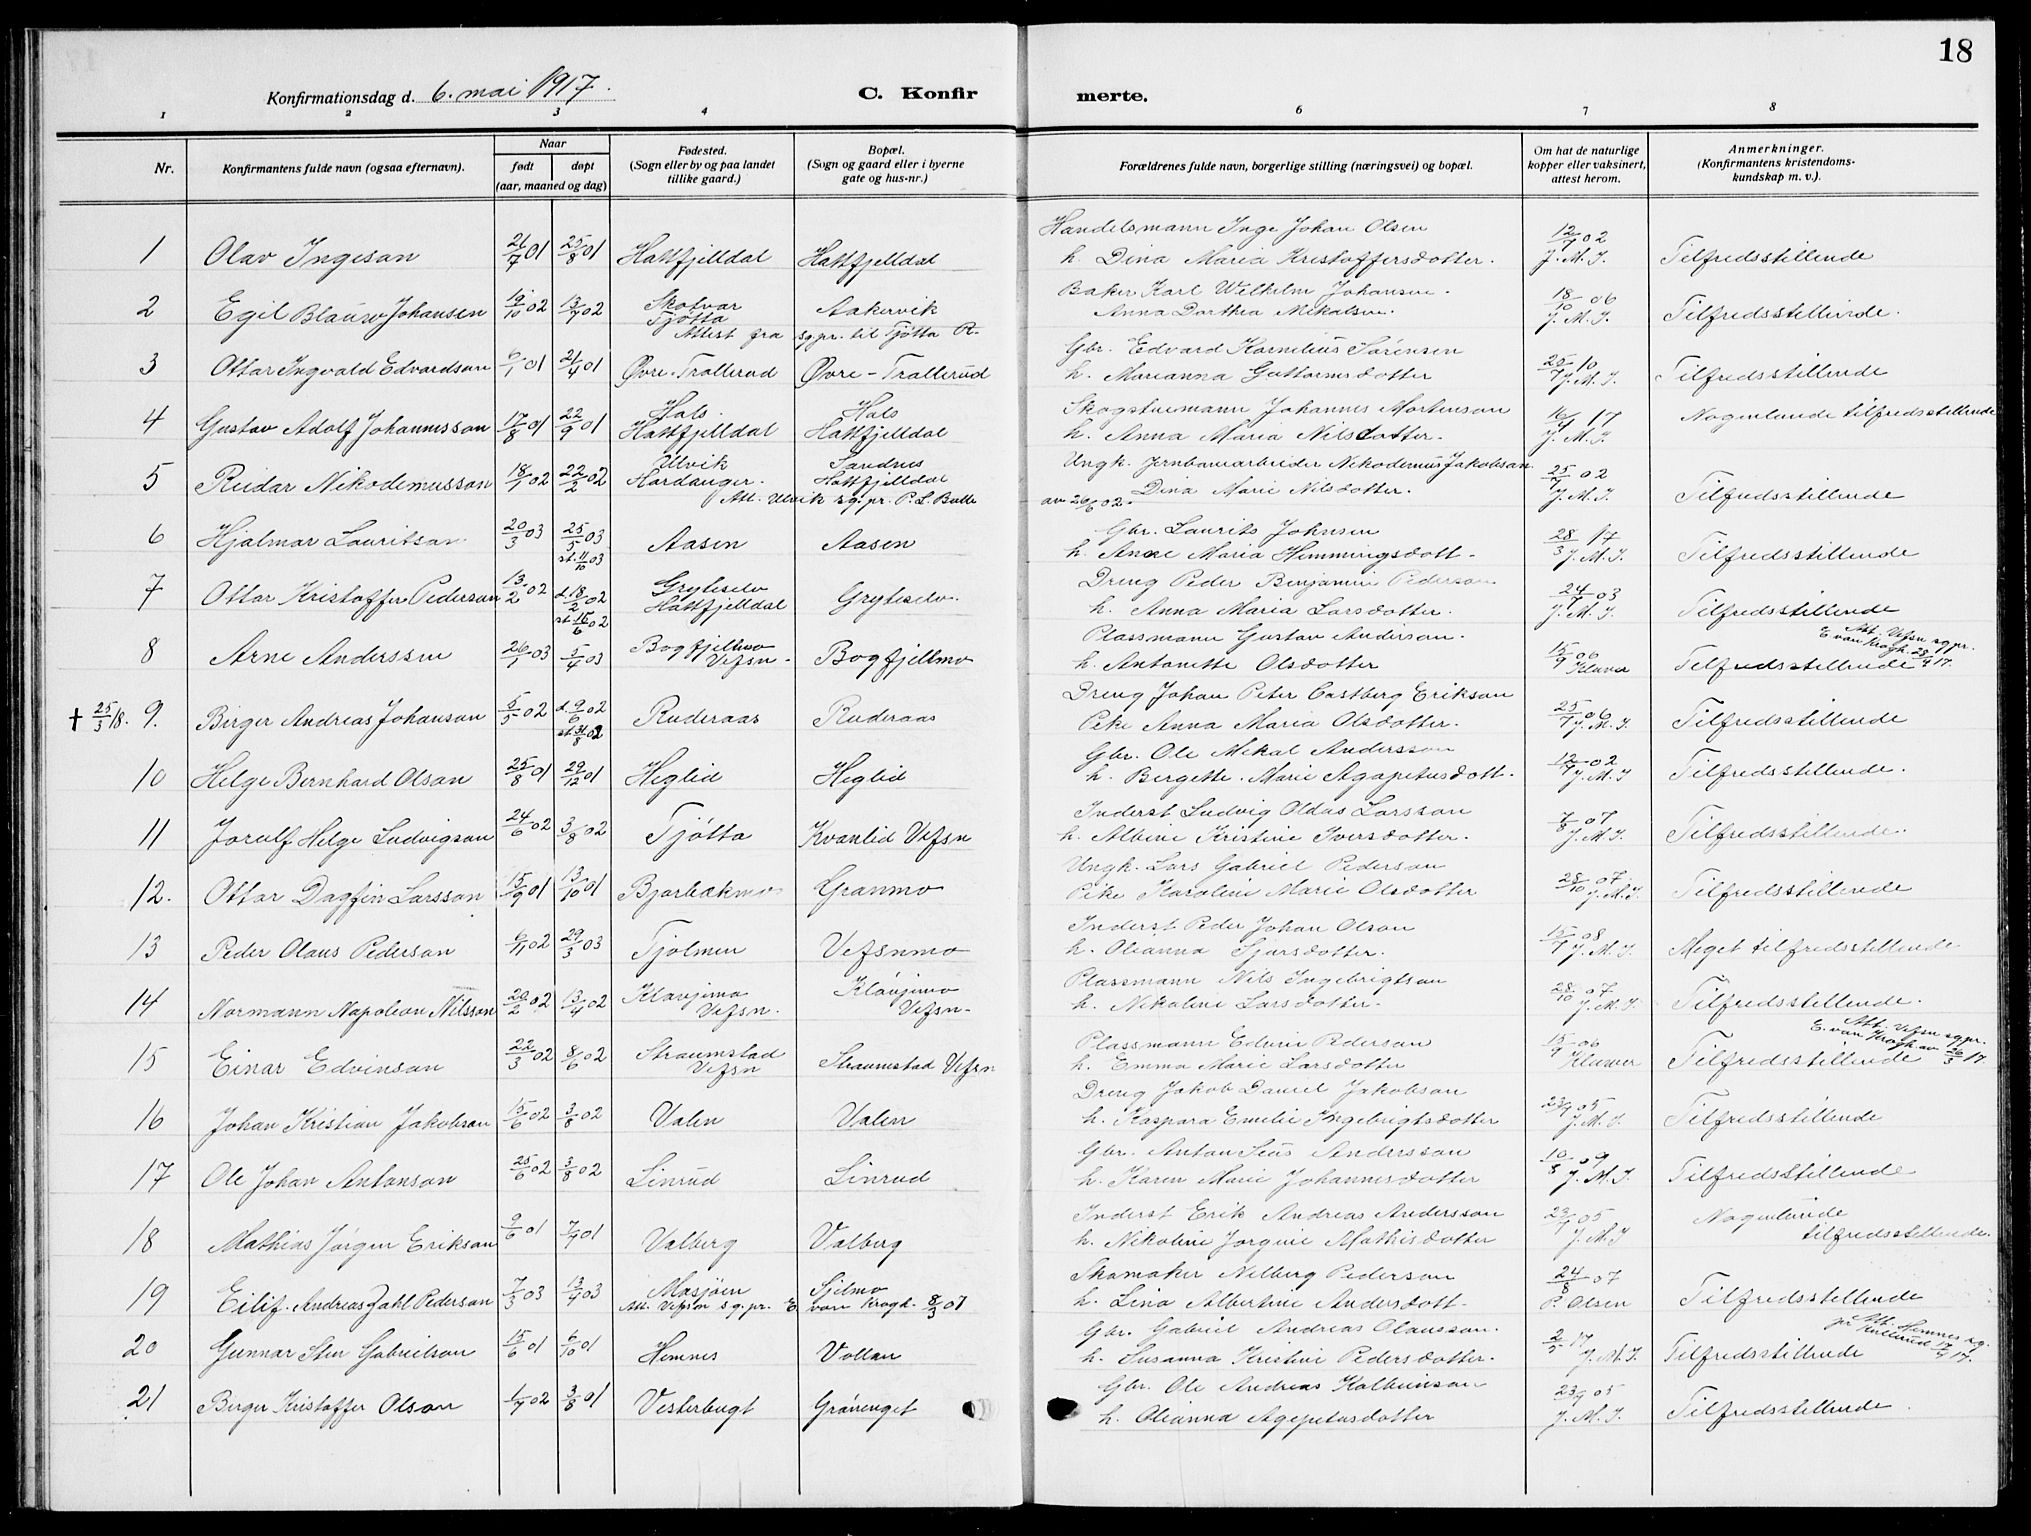 18
Konfirmationsdag d. 6. mai 1917.
C. Konfirmerte.
1 2 3 4 6 7 8
Nr. Konfirmantens fulde navn (ogsaa efternavn). Naar født døpt (aar, maaned og dag) Fødested. (Sogn eller by og paa landet tillike gaard.) Bopæl. (Sogn og gaard eller i byerne gate og hus-nr.) Forældrenes fulde navn, borgerlige stilling (næringsvei) og bopæl. Om hat de naturlige kopper eller vaksinert, attest herom. Anmerkninger. (Konfirmantens kristendoms-kundskap m. v.).
1 Olav Ingeson 21/7 01 25/8 01 Hattfjelldal Hattfjelldal Handelsmann Inge Johan Olsen
h. Dina Maria Kristoffersdotter. 12/7 02 J. M. J. Tilfredsstillende
2 Egil Blauw Johansen 19/10 02 13/7 02 Skotvar Tjøtta Aakervik Baker Karl Wilhelm Johansen.
Anna Dorthea Nikolsen. 18/10 06 J. M. J. Tilfredsstillende.
Attest fra sg.pr. til Tjøtta
3 Ottar Ingvald Edvardson 6/1 01 21/4 01 Øvre-Trallerud Øvre-Trallerud Gbr. Edvard Kornelius Sørensen
h. Marianna Guttormsdotter 25/7 10 J. M. J. Tilfredsstillende
4 Gustav Adolf Johannesson 17/8 01 22/9 01 Hals. Hattfjelldal Hals Hattfjelldal Skogstuemann Johannes Mortenson
h. Anna Maria Nilsdotter. 16/4 17 J. M. J. Nogenlunde tilfredsstillende
5 Reidar Nikodemusson 18/1 02 22/2 02 Ulvik Hardanger. Sandnes Hattfjelldal Ungk. Jernbanearbeider Nikodemus Jakobson
Dina Marie Nilsdotter. 25/7 02 J. M. J. Tilfredsstillende
Att. Ulvik sg.pr. P. L. Balle av 26/6 02.
6 Hjalmar Lauritson 20/3 03 25/5 03 st. 11/10 03 Aasen Aasen Gbr. Laurits Johnsen
h. Anne Maria Hemmingsdott. 28/3 14 J. M. J. Tilfredsstillende
7 Ottar Kristoffer Pederson 13/2 02 d. 18/2 02 st. 15/6 02 Gryteselv Hattfjelldal Gryteselv. Dreng Peder Benjamin Pederson
h. Anna Maria Larsdotter. 24/7 03 J. M. J. Tilfredsstillende
8 Arne Anderssen 26/1 03 5/4 03 Bogfjellmo Vefsn. Bogfjellmo Plassmann Gustav Anderson.
h. Antonette Olsdotter 15/9 06 Kluwer Tilfredsstillende
Att. Vefsn sg.pr. E. van Krogh 23/4 17.
† 25/3 18. 9. Birger Andreas Johanson 5/5 02 d. 9/6 02 st. 31/8 02 Ruderaas Ruderaas Dreng Johan Peter Castberg Erikson
Pike Anna Maria Olsdotter. 25/7 06 J. M. J. Tilfredsstillende
10 Helge Bernhard Olson 25/8 01 29/12 01 Heglid Heglid Gbr. Ole Mikal Andersson
h. Bergette Marie Agapetusdott. 12/7 02 J. M. J Tilfredsstillende.
11 Jorulf Helge Ludvigson 24/6 02 3/8 02 Tjøtta Kvanlid Vefsn Inderst Ludvig Oldus Larsson
h. Albine Kristine Iversdotter. 7/8 07 J. M. J. Tilfredsstillende.
12. Ottar Dagfin Larsson 15/9 01 13/10 01 Bjørbækmo Granmo Ungk. Lars Gabriel Pederson
Pike Karoline Marie Olsdotter 28/10 07. J. M. J. Tilfredsstillende
13 Peder Olaus Pederson 6/11 02 29/3 03 Tjolmen Vefsnmo Inderst Peder Johan Olson
h. Olianna Sjursdotter. 15/7 08 J. M. J. Meget tilfredsstillende
14 Normann Napoleon Nilsson 20/2 02 13/4 02 Klavjimo Vefsn. Klavjimo Vefsn. Plassmann Nils Ingebrigtson
h. Nikoline Larsdotter. 28/10 07 J. M. J. Tilfredsstillende.
15 Einar Edvinson 22/3 02 8/6 02 Straumstad Vefsn Straumstad Vefsn Plassmann Edvin Pederson
h. Emma Marie Larsdotter 15/9 06 Kluwer Tilfredsstillende
Att. Vefsn sg.pr. E. van Krogh av 26/3 17.
16 Johan Kristian Jakobson 15/6 02 3/8 02 Valen Valen Dreng Jakob Daniel Jakobson
h. Kaspara Emelie Ingebrigtsdotter 23/9 05 J. M. J. Tilfredsstillende
17 Ole Johan Antonson 25/6 02 3/8 02 Linrud Linrud Gbr. Anton Seus Andersson
h. Karen Marie Johannesdotter 10/8 09 J. M. J. Tilfredsstillende
18 Mathias Jørgen Erikson 9/6 01 7/7 01 Valberg Valberg Inderst Erik Andreas Andersson
h. Nikoline Jorgine Mathisdotter 23/9 05 J. M. J Nogenlunde tilfredsstillende.
19 Eilif Andreas Zahl Pederson 7/3 03 13/4 03 Mosjøen Sjelmo Skomaker Nilberg Pederson
h. Lina Albertine Andersdott. 24/8 07 P. Olsen Tilfredsstillende
Att. Vefsn sg.pr. E. van Krogh. 8/3 07
20 Gunnar Sten Gabrielson 15/6 01 6/10 01 Hemnes Vollan Gbr. Gabriel Andreas Olausson.
h. Susanna Kristine Pedersdotter. 2/5 17 J. M. J. Tilfredsstillende
Att. Hemnes sg. pr 12/4 17.
21 Birger Kristoffer Olson 1/7 02 3/8 01 Vesterbugt Grønenget Gbr. Ole Andreas Kolbeinson
h. Olianna Agepetusdotter 23/9 05 J. M. J. Tilfredsstillende.